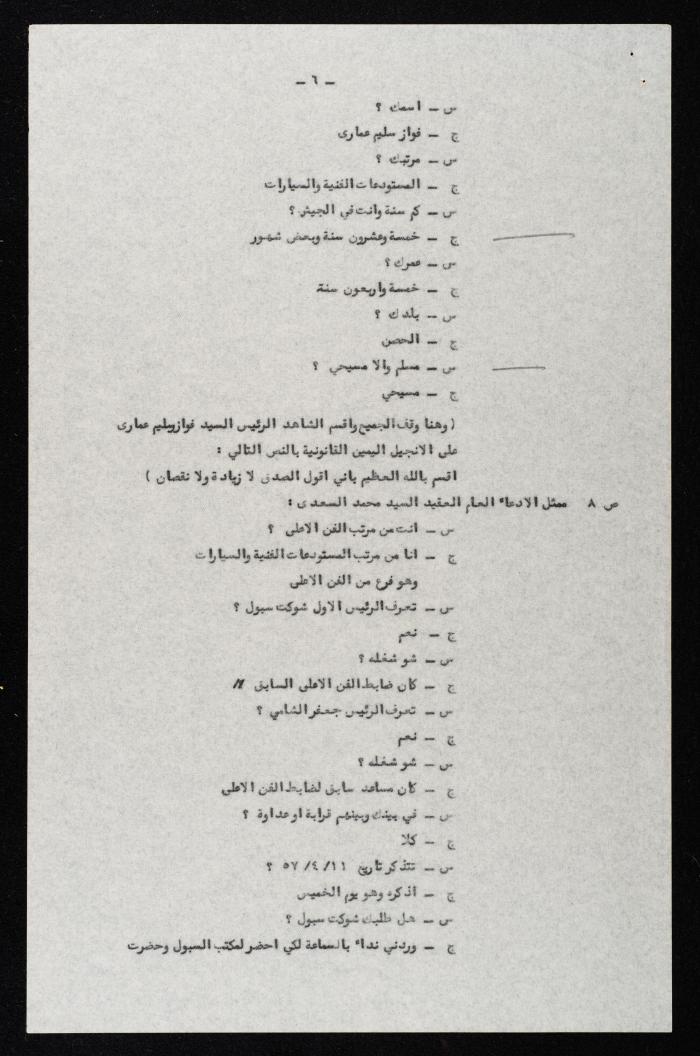 ـ ٦ ـ
س ـ اسمك ؟
ج ـ فواز سليم عمارى
س ـ مرتبك ؟
ج ـ المستودعات الفنية والسيارات
س ـ كم سنة وانت في الجيش ؟
ج ـ خمسة وعشرون سنة وبعض شهور
س ـ عمرك ؟
ج ـ خمسة واربعون سنة
س ـ بلدك ؟
ج ـ الحصن
س ـ مسلم والا مسيحي ؟
ج ـ مسيحي
( وهنا وقف الجميع واقسم الشاهد الرئيس السيد فواز سليم عمارى
على الانجيل اليمين القانونية بالنص التالي :
اقسم بالله العظيم باني اقول الصدق لا زيادة ولا نقصان )
ص ٨ ممثل الادعاء العام العقيد السيد محمد السعدى :
س ـ انت من مرتب الفن الاعلى ؟
ج ـ انا من مرتب المستودعات الفنية والسيارات
وهو فرع من الفن الاعلى
س ـ تعرف الرئيس الاول شوكت سبول ؟
ج ـ نعم
س ـ شو شغله ؟
ج ـ كان ضابط الفن الاعلى السابق
س ـ تعرف الرئيس جعفر الشامي ؟
ج ـ نعم
س ـ شو شغله ؟
ج ـ كان مساعد سابق لضابط الفن الاعلى
س ـ في بينك وبينهم قرابة او عداوة ؟
ج ـ كلا
س ـ تتذكر تاريخ ١١/ ٤/ ٥٧ ؟
ج ـ اذكره وهو يوم الخميس
س ـ هل طلبك شوكت سبول ؟
ج ـ وردني نداء بالسماعة لكي احضر لمكتب السبول وحضرت